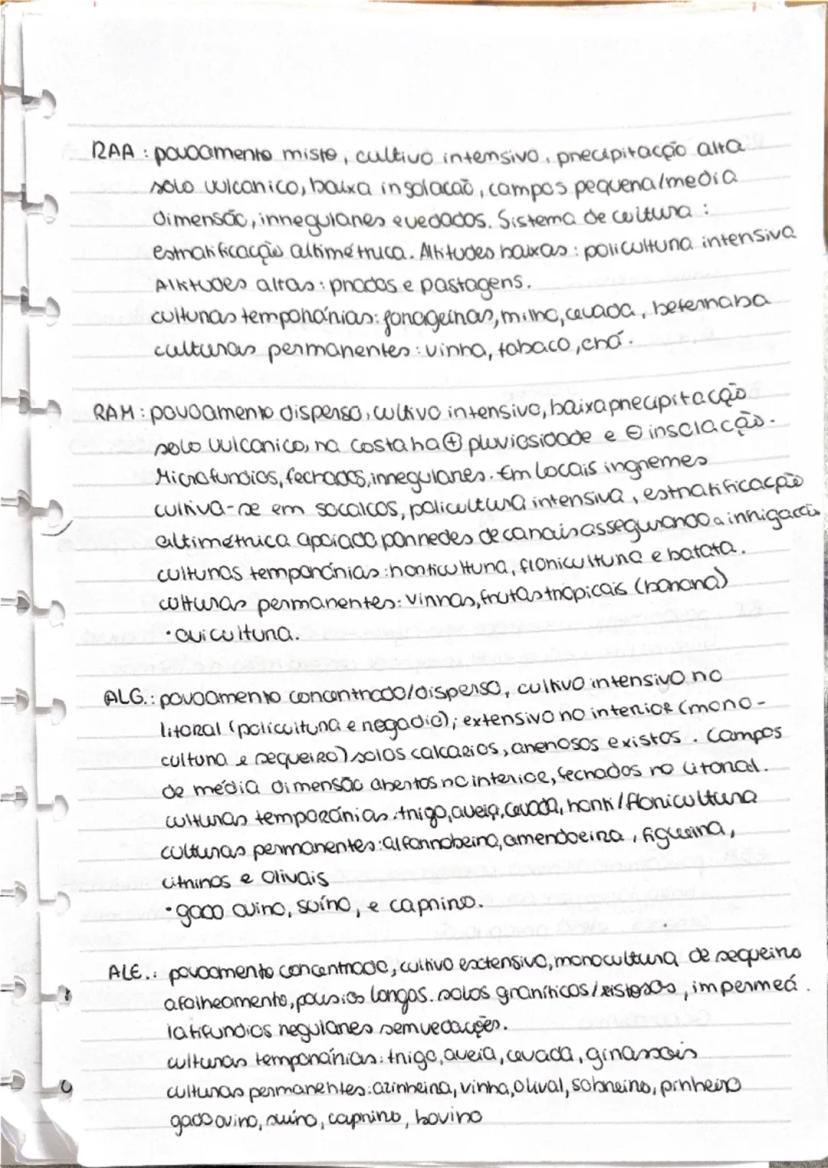 RAA : povoamento misto, cultivo intensivo, precipitação alta
solo vulcanico, baixa insolação, campos pequena/media
dimensão, irregulares e vedados. Sistema de cultura :
estratificação altimétrica. Altitudes baixas : policultura intensiva
Altitudes altas : prados e pastagens.
culturas temporárias: forrageiras, milho, cevada, beterraba
culturas permanentes : vinha, tabaco, chá.
RAM : povoamento disperso, cultivo intensivo, baixa precipitação
solo vulcanico, na costa ha ⊕ pluviosidade e ⊖ insolação.
Microfundios, fechados, irregulares. Em locais ingremes
cultiva-se em socalcos, policultura intensiva, estratificação
altimétrica apoiada por redes de canais assegurando a irrigação
culturas temporárias : horticultura, floricultura e batata.
culturas permanentes : vinhas, frutas tropicais (banana)
• avicultura.
ALG.: povoamento concentrado/disperso, cultivo intensivo no
litoral (policultura e regadio); extensivo no interior (mono-
cultura e sequeiro) solos calcarios, arenosos e xistos. Campos
de média dimensão abertos no interior, fechados no litoral.
culturas temporárias : trigo, aveia, cevada, horti/floricultura
culturas permanentes : alfarrobeira, amendoeira, figueira,
citrinos e olivais
• gado ovino, suíno, e caprino.
ALE.: povoamento concentrado, cultivo extensivo, monocultura de sequeiro
afolheamento, pousios longos. solos graníticos/xistosos, impermeá.
latifundios regulares sem vedações.
culturas temporárias : trigo, aveia, cevada, girassois
culturas permanentes : azinheira, vinha, olival, sobreiro, pinheiro
gado ovino, suíno, caprino, bovino